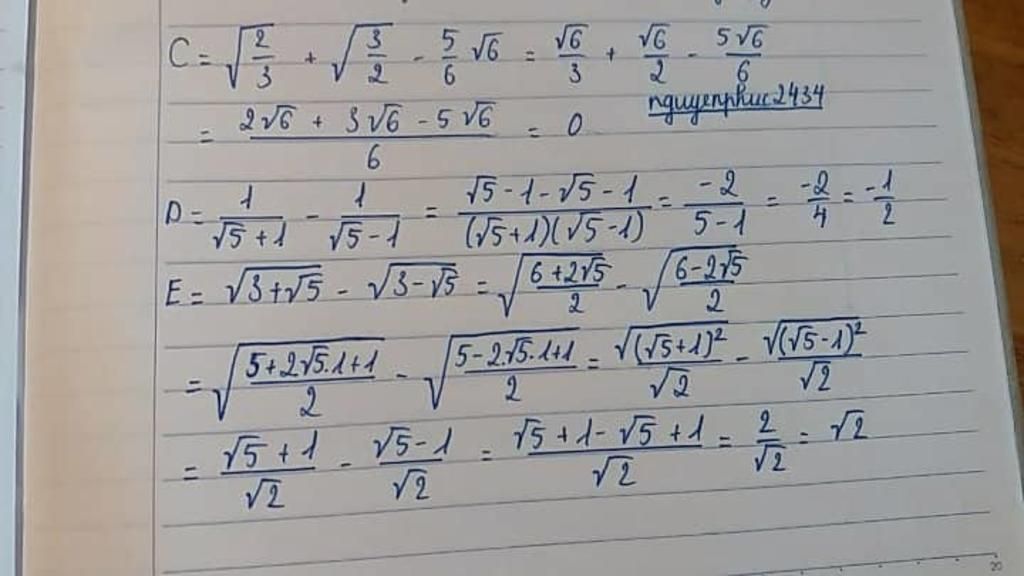 C = √(2/3) + √(3/2) - 5/6 √6 = √6/3 + √6/2 - 5√6/6
nguyenphuc2434
= (2√6 + 3√6 - 5√6)/6 = 0
D = 1/(√5 + 1) - 1/(√5 - 1) = (√5 - 1 - √5 - 1)/((√5 + 1)(√5 - 1)) = -2/(5 - 1) = -2/4 = -1/2
E = √(3 + √5) - √(3 - √5) = √((6 + 2√5)/2) - √((6 - 2√5)/2)
= √((5 + 2√5.1 + 1)/2) - √((5 - 2√5.1 + 1)/2) = √((√5 + 1)²)/√2 - √((√5 - 1)²)/√2
= (√5 + 1)/√2 - (√5 - 1)/√2 = (√5 + 1 - √5 + 1)/√2 = 2/√2 = √2
20